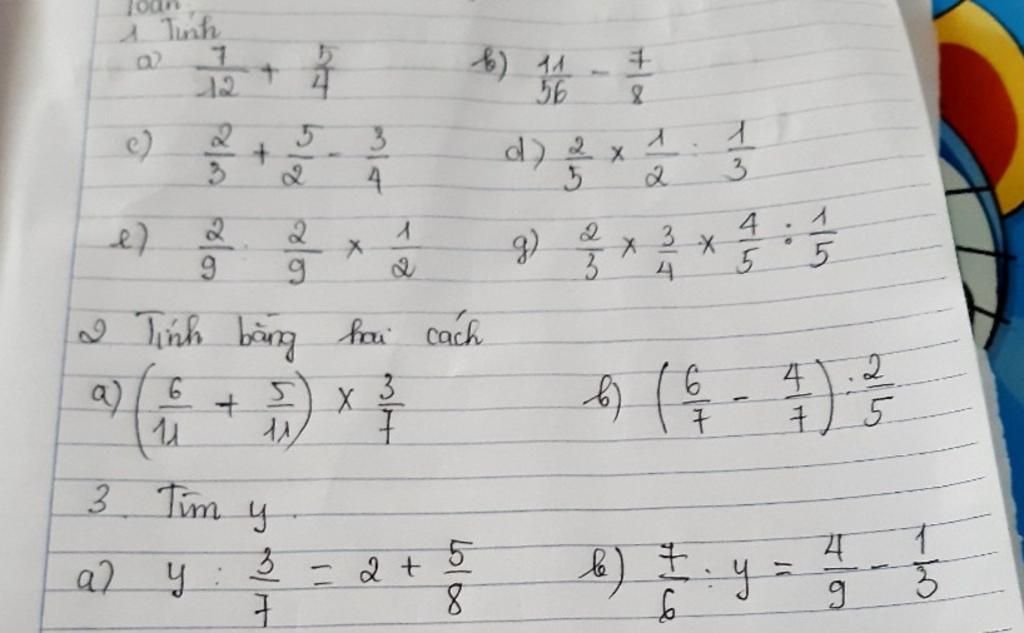 Toán
1 Tính
a) 7/12 + 5/4 b) 11/56 - 7/8
c) 2/3 + 5/2 - 3/4 d) 2/5 x 1/2 : 1/3
e) 2/9 : 2/9 x 1/2 g) 2/3 x 3/4 x 4/5 : 1/5
2 Tính bằng hai cách
a) (6/11 + 5/11) x 3/7 b) (6/7 - 4/7) : 2/5
3. Tìm y.
a) y : 3/7 = 2 + 5/8 b) 7/6 : y = 4/9 - 1/3